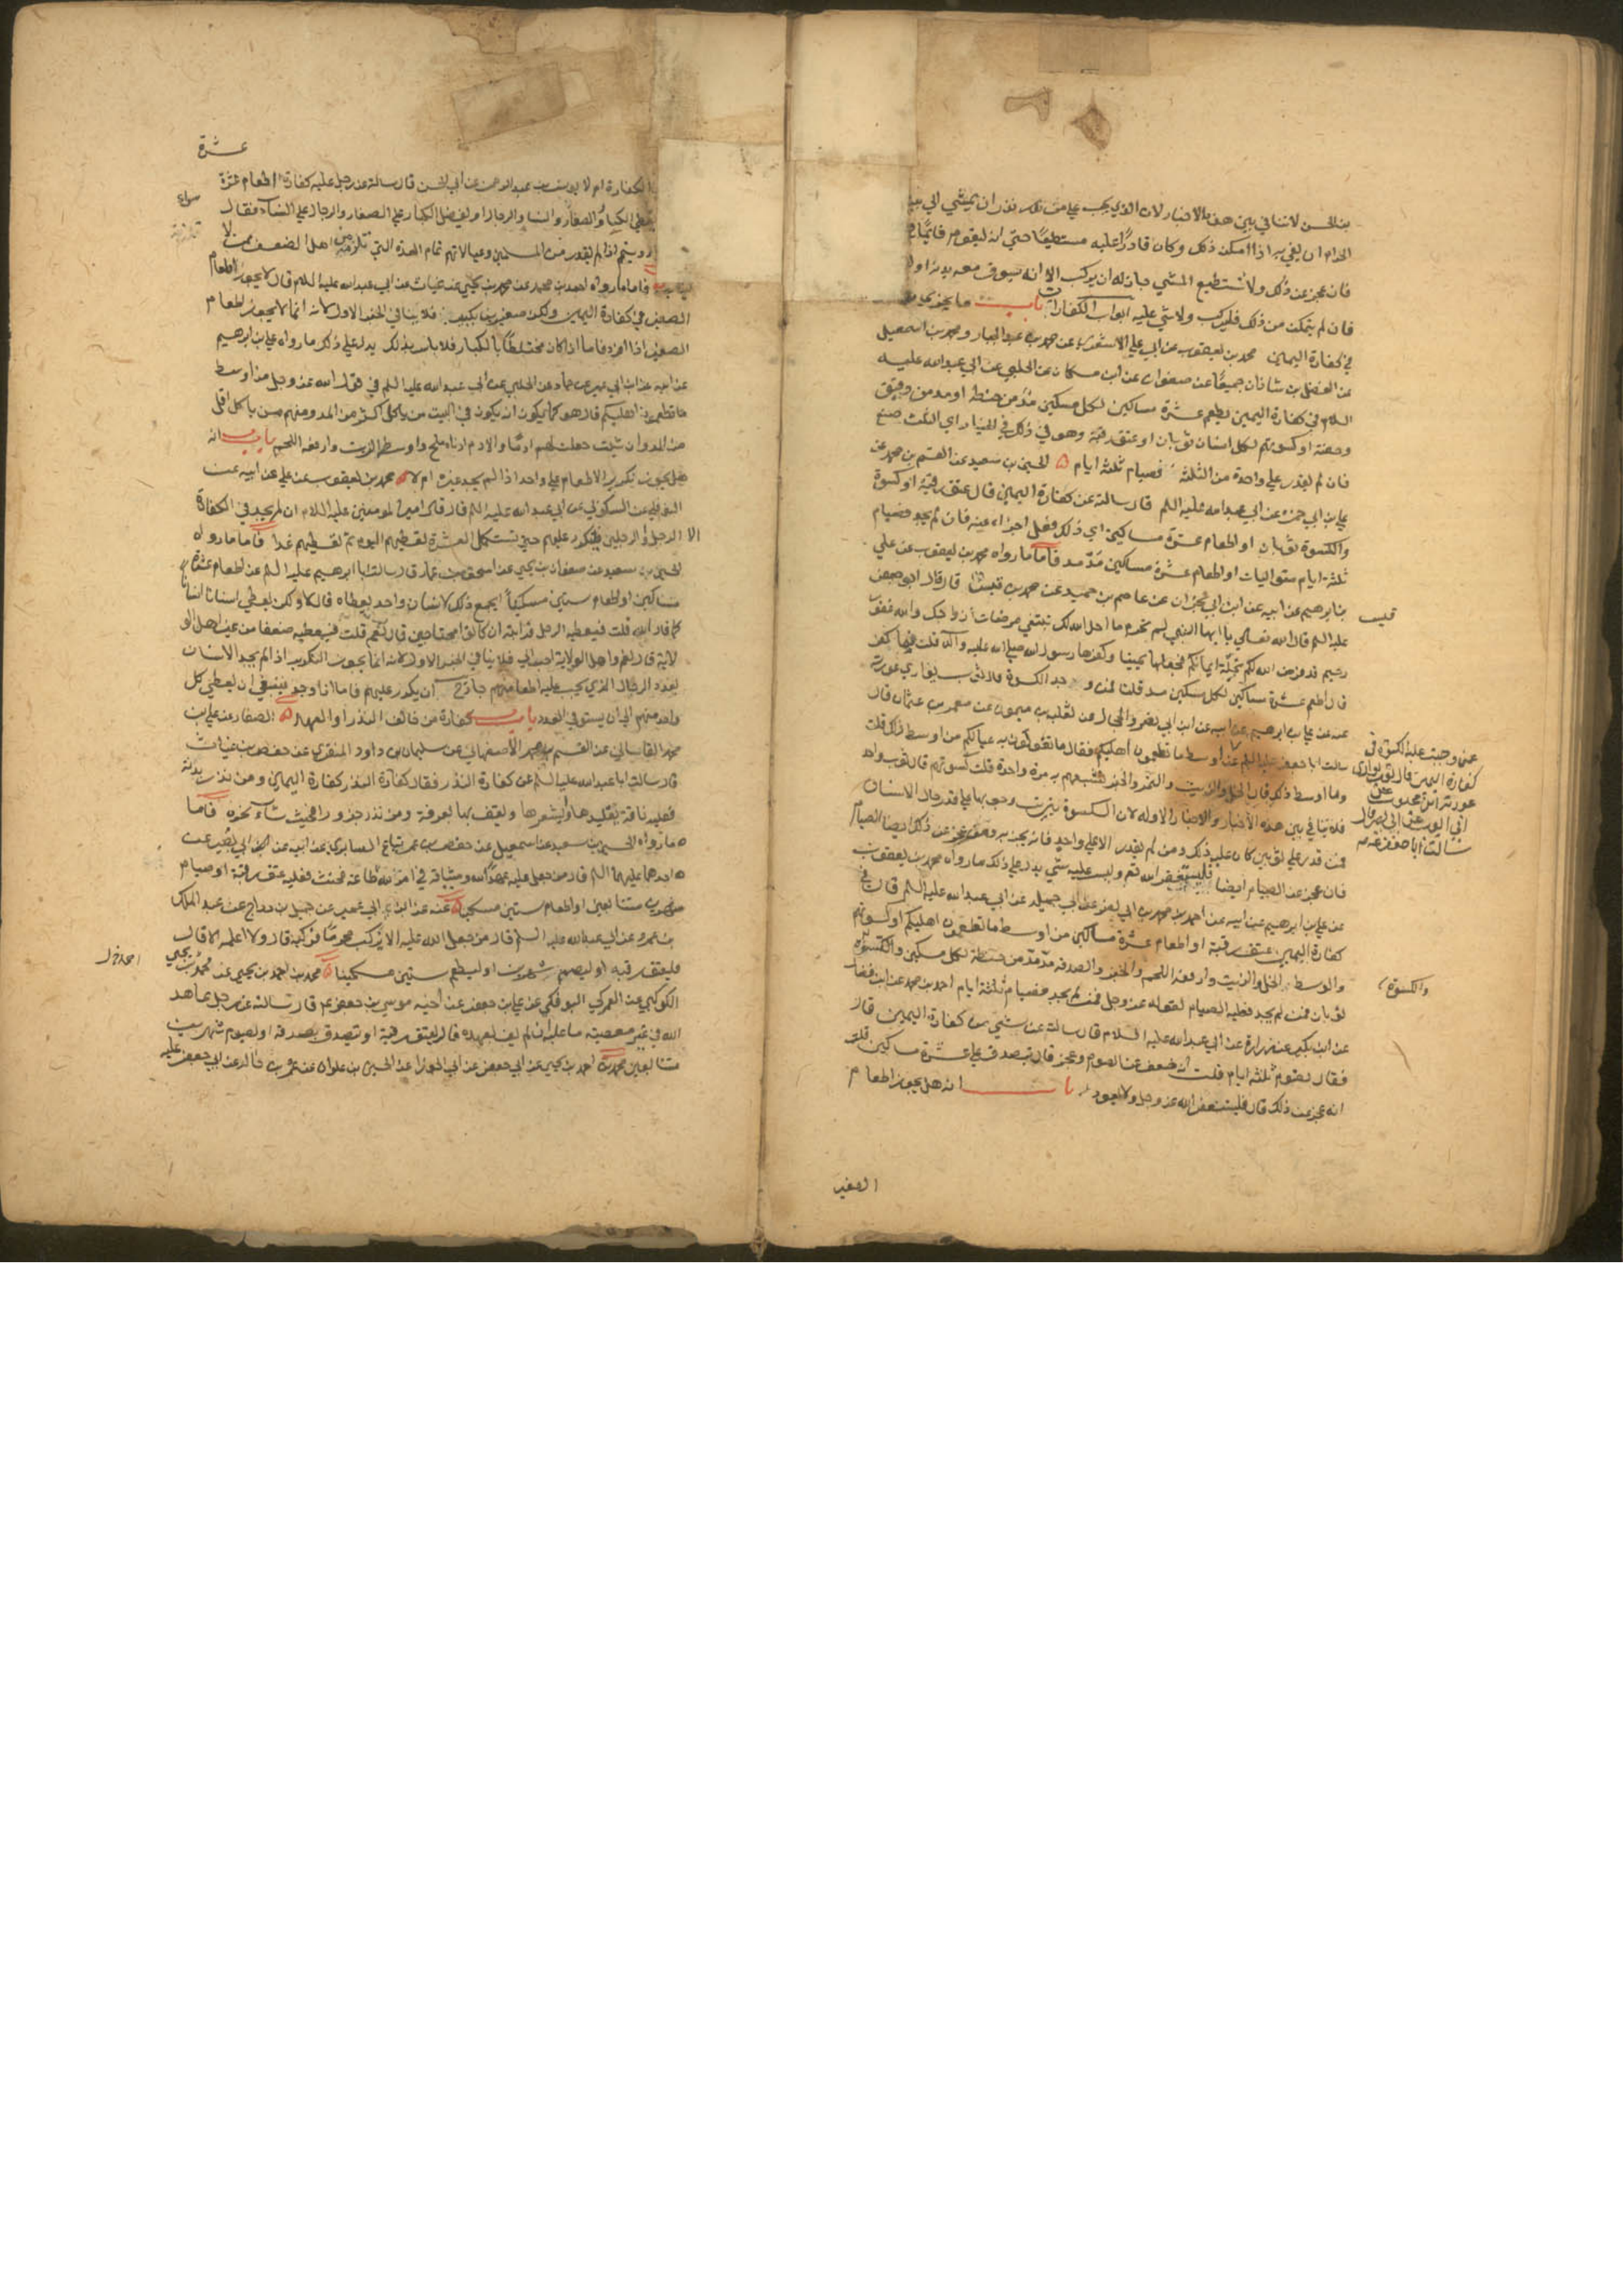 بن الحسن لاتنافي بين هذه الاخبار لان الذي يجب علي من نذر ان يمشي الي بيت
الحرام ان يفي به اذا امكن ذلك وكان قادرًا عليه مستطيعًا حتي انه ليقوم قائمًا
فان عجز عن ذلك ولا يستطيع المشي جاز له ان يركب الا انه يسوق معه بدنة اولا
فان لم يتمكن من ذلك فليركب ولا شي عليه ابواب الكفارات باب ما يجزي من
في كفارة اليمين محمد بن يعقوب عن ابي علي الاشعري عن محمد بن عبد الجبار ومحمد بن اسمعيل
عن الفضل بن شاذان جميعًا عن صفوان عن ابن مسكان عن الحلبي عن ابي عبدالله عليه
السلام في كفارة اليمين يطعم عشرة مساكين لكل مسكين مد من حنطة او مد من دقيق
وحفنة او كسوتهم لكل انسان ثوبان او عتق رقبة وهو في ذلك في الخيار اي الثلث صنع
فان لم يقدر علي واحدة من الثلثة فصيام ثلثة ايام الحسين بن سعيد عن القسم بن محمد عن
علي بن ابي حمزه عن ابي عبدالله عليه السلم قال سالته عن كفارة اليمين قال عتق رقبة او كسوة
والكسوة ثوبان او اطعام عشرة مساكين اي ذلك فعل اجزا عنه فان لم يجد فصيام
ثلثة ايام متواليات او اطعام عشرة مساكين مدّ مد فاما ما رواه محمد بن يعقوب عن علي
بن ابرهيم عن ابيه عن ابن ابي نجران عن عاصم بن حميد عن محمد بن قيس قال قال ابو جعفر
عليه السلم قال الله تعالي يا ايها النبي لم تحرم ما احل الله لك تبتغي مرضات ازواجك والله غفور
رحيم قد فرض الله لكم تحلة ايمانكم فجعلها يمينا وكفرها رسول الله صلي الله عليه وآله قلت فيما كفر
قال اطعم عشرة مساكين لكل مسكين مد قلنا فمن وجد الكسوة قال ثوب يواري عورته
عنه عن علي بن ابرهيم عن ابيه عن ابن ابي نصر والحجال عن ثعلبه بن ميمون عن معمر بن عثمان قال
سالت ابا جعفر عليه السلم عن اوسط ما تطعمون اهليكم فقال ما تقوتون به عيالكم من اوسط ذلك قلت
وما اوسط ذلك قال الخل والزيت والتمر والخبز تشبعهم به مرة واحدة قلت كسوتهم قال ثوب واحد
فلا تنافي بين هذه الاخبار والاخبار الاوله لان الكسوة بترتب وجوبها علي قدر حال الانسان
فمن قدر علي ثوبين كان عليه ذلك ومن لم يقدر الا علي واحد فانه يجزيه ومتي عجز عن ذلك ايضا الصيام
فان عجز عن الصيام ايضا فليستغفر الله تم وليس عليه شي يدل علي ذلك ما رواه محمد بن يعقوب
عن علي بن ابرهيم عن ابيه عن احمد بن محمد بن ابي نصر عن ابي جميله عن ابي عبدالله عليه السلم قال في
كفارة اليمين عتق رقبة او اطعام عشرة مساكين من اوسط ما تطعمون اهليكم او كسوتهم
والوسط الخل والزيت وارفعه اللحم والخبز والصدقه مدّ مدّ من حنطة لكل مسكين والكسوة
ثوبان فمن لم يجد فعليه الصيام لقوله عز وجل فمن لم يجد فصيام ثلثة ايام احمد بن محمد عن ابن فضال
عن ابن بكير عن زرارة عن ابي عبدالله عليه السلام قال سالته عن شي من كفارة اليمين قال
فقال يصوم ثلثه ايام قلت انه ضعف عن الصوم وعجز قال يتصدق علي عشرة مساكين قلت
انه عجز عن ذلك قال فليستغفر الله عز وجل ولا يعود باب انه هل يجوز اطعام
عمن وجبت عليه الكسوة في
كفارة اليمين قال ثوب يواري
سالت ابا جعفر عنه
والكسوة
الصغير
عشرة
الكفارة ام لا يونس بن عبد الرحمن عن ابي الحسن قال سالته عن رجل عليه كفارة اطعام عشرة
يعطي الكبار والصغار والنسا والرجال او يفضل الكبار علي الصغار والرجال علي النساء فقال
سواء
ويتمم اذا لم يقدر من المسلمين وعيالاتهم تمام العدة التي تلزمه من اهل الضعف ممن لا
ينصب فاما ما رواه احمد بن محمد عن محمد بن يحيي عن غياث عن ابي عبدالله عليه السلام قال لا يجوز اطعام
الصغير في كفارة اليمين ولكن صغيرين بكبير فلا ينافي الخبر الاول لانه انما لا يجوز اطعام
الصغير اذا افرد فاما اذا كان مختلطًا بالكبار فلا باس بذلك يدل علي ذلك ما رواه علي بن ابرهيم
عن ابيه عن ابن ابي عمير عن حماد عن الحلبي عن ابي عبدالله عليه السلم في قول الله عز وجل من اوسط
ما تطعمون اهليكم قال هو كما يكون انه يكون في البيت من ياكل اكثر من المد ومنهم من ياكل اقل
من المد وان شيت جعلت لهم ادمًا والادم ادناه ملح واوسطه الزيت وارفعه اللحم باب انه
هل يجوز تكرير الاطعام علي واحد اذا لم يجد غيره ام لا محمد بن يعقوب عن علي عن ابيه عن
النوفلي عن السكوني عن ابي عبدالله عليه السلم قال قال امير المومنين عليه السلام ان لم يجد في الكفارة
الا الرجل والرجلين فيكرر عليهم حتي يستكمل العشرة يعطيهم اليوم ثم يعطيهم غدا فاما ما رواه
الحسين بن سعيد عن صفوان بن يحيي عن اسحق بن عمار قال سالت ابا ابرهيم عليه السلم عن اطعام عشرة
مساكين او اطعام ستين مسكينا ايجمع ذلك لانسان واحد يعطاه قال لا ولكن يعطي انسانا انسانا
كما قال الله قلت فيعطيه الرجل قرابته ان كانوا محتاجين قال نعم قلت فيعطيه ضعفا من غير اهل الو
لاية قال نعم واهل الولاية احب الي فلا ينافي الخبر الاول لانه انما يجوز التكرير اذا لم يجد الانسان
بعدد الرجال الذي يجب عليه اطعامهم جاز ان يكرر عليهم فاما اذا وجد فينبغي ان يعطي كل
واحد منهم الي ان يستوفي العدد باب كفارة من خالف النذر او العهد الصفار عن علي بن
محمد القاساني عن القسم بن محمد الاصفهاني عن سليمان بن داود المنقري عن حفص بن غياث
قال سالت ابا عبدالله عليه السلم عن كفارة النذر فقال كفارة النذر كفارة اليمين ومن نذر بدنة
فعليه ناقة يقلدها ويشعرها ويقف بها بعرفة ومن نذر جزورا فحيث شاء نحره فاما
ما رواه الحسين بن سعيد عن اسمعيل عن حفص بن عمر بياع السابري عن ابيه عن ابي بصير عن
احدهما عليهما السلم قال من جعل عليه عهد الله وميثاقه في امر لله طاعة فحنث فعليه عتق رقبة او صيام
شهرين متتابعين او اطعام ستين مسكينا عنه عن ابن ابي عمير عن جميل بن دراج عن عبد الملك
بن عمرو عن ابي عبدالله عليه السلم قال من جعل لله عليه الا يركب محرمًا فركبه قال ولا اعلمه الا قال
فليعتق رقبه او ليصم شهرين او ليطعم ستين مسكينا محمد بن احمد بن يحيي عن محمد بن يحيي
الكوكبي عن العمركي البوفكي عن علي بن جعفر عن اخيه موسي بن جعفر عم قال سالته عن رجل عاهد
الله في غير معصيته ما عليه ان لم يف بعهده قال يعتق رقبة او يتصدق بصدقه او يصوم شهرين
متتابعين محمد بن احمد بن يحيي عن ابي جعفر عن ابي الجوزا عن الحسين بن علوان عن عمرو بن خالد عن ابي جعفر عليه